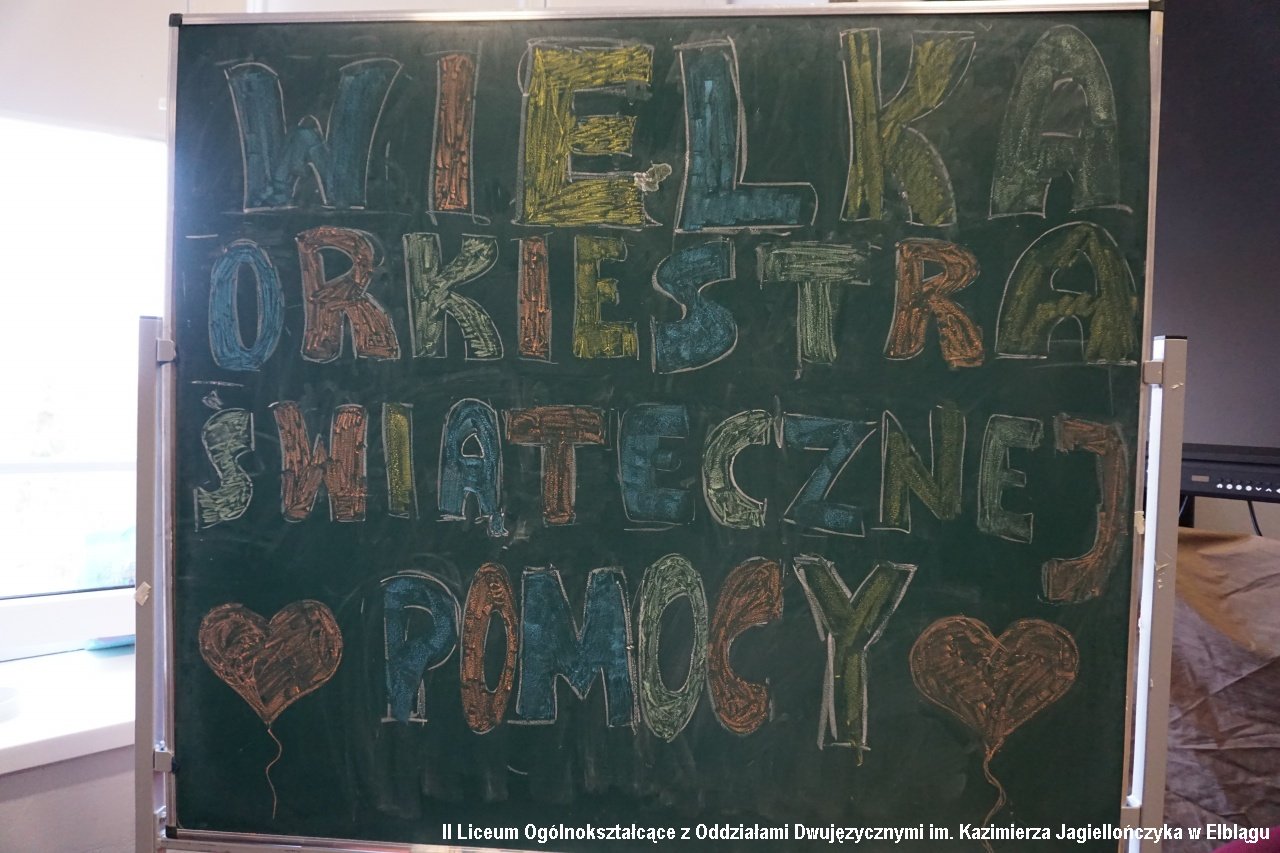 WIELKA
ORKIESTRA
ŚWIĄTECZNEJ
POMOCY
II Liceum Ogólnokształcące z Oddziałami Dwujęzycznymi im. Kazimierza Jagiellończyka w Elblągu